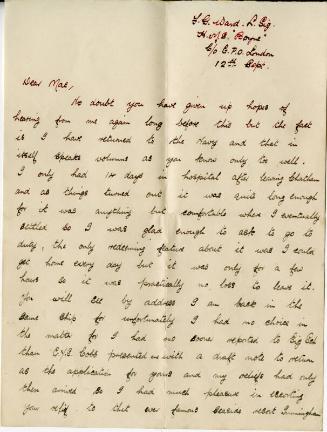 F. C. Ward. L. Sig.
H.M.S. "Boyne"
C/o G.P.O. London
12th Sept.
Dear Mac,
No doubt you have given up hopes of
hearing from me again long before this but the fact
is I have returned to the Navy and that in
itself speaks volumes as you know only too well.
I only had 14 days in hospital after leaving Chatham
and as things turned out it was quite long enough
for it was anything but comfortable when I eventually
settled so I was glad enough to ask to go to
duty, the only redeeming feature about it was I could
get home every day but it was only for a few
hours so it was practically no loss to leave it.
You will see by address I am back in the
same ship for unfortunately I had no choice in
the matter for I had no sooner reported to Sig Sch
than C.Y.S. Cobb presented me with a draft note to return
as the application for yours and my reliefs had only
then arrived so I had much pleasure in escorting
your relief to this ever famous seaside resort